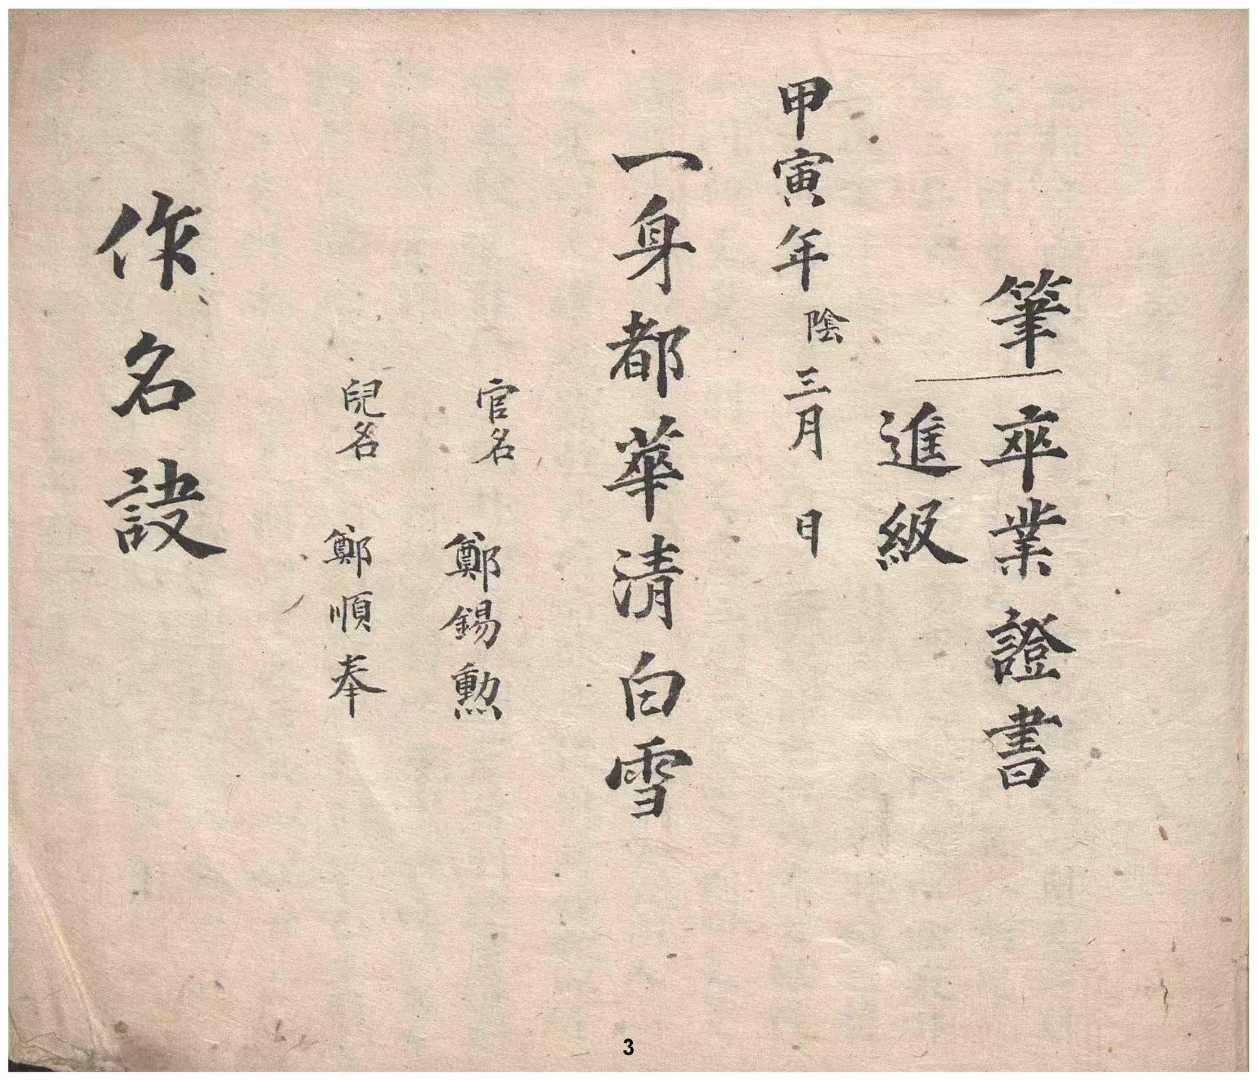 筆卒業證書
進級
甲寅年陰三月 日
一身都華清白雪
官名 鄭錫勲
兒名 鄭順奉
作名訣
3